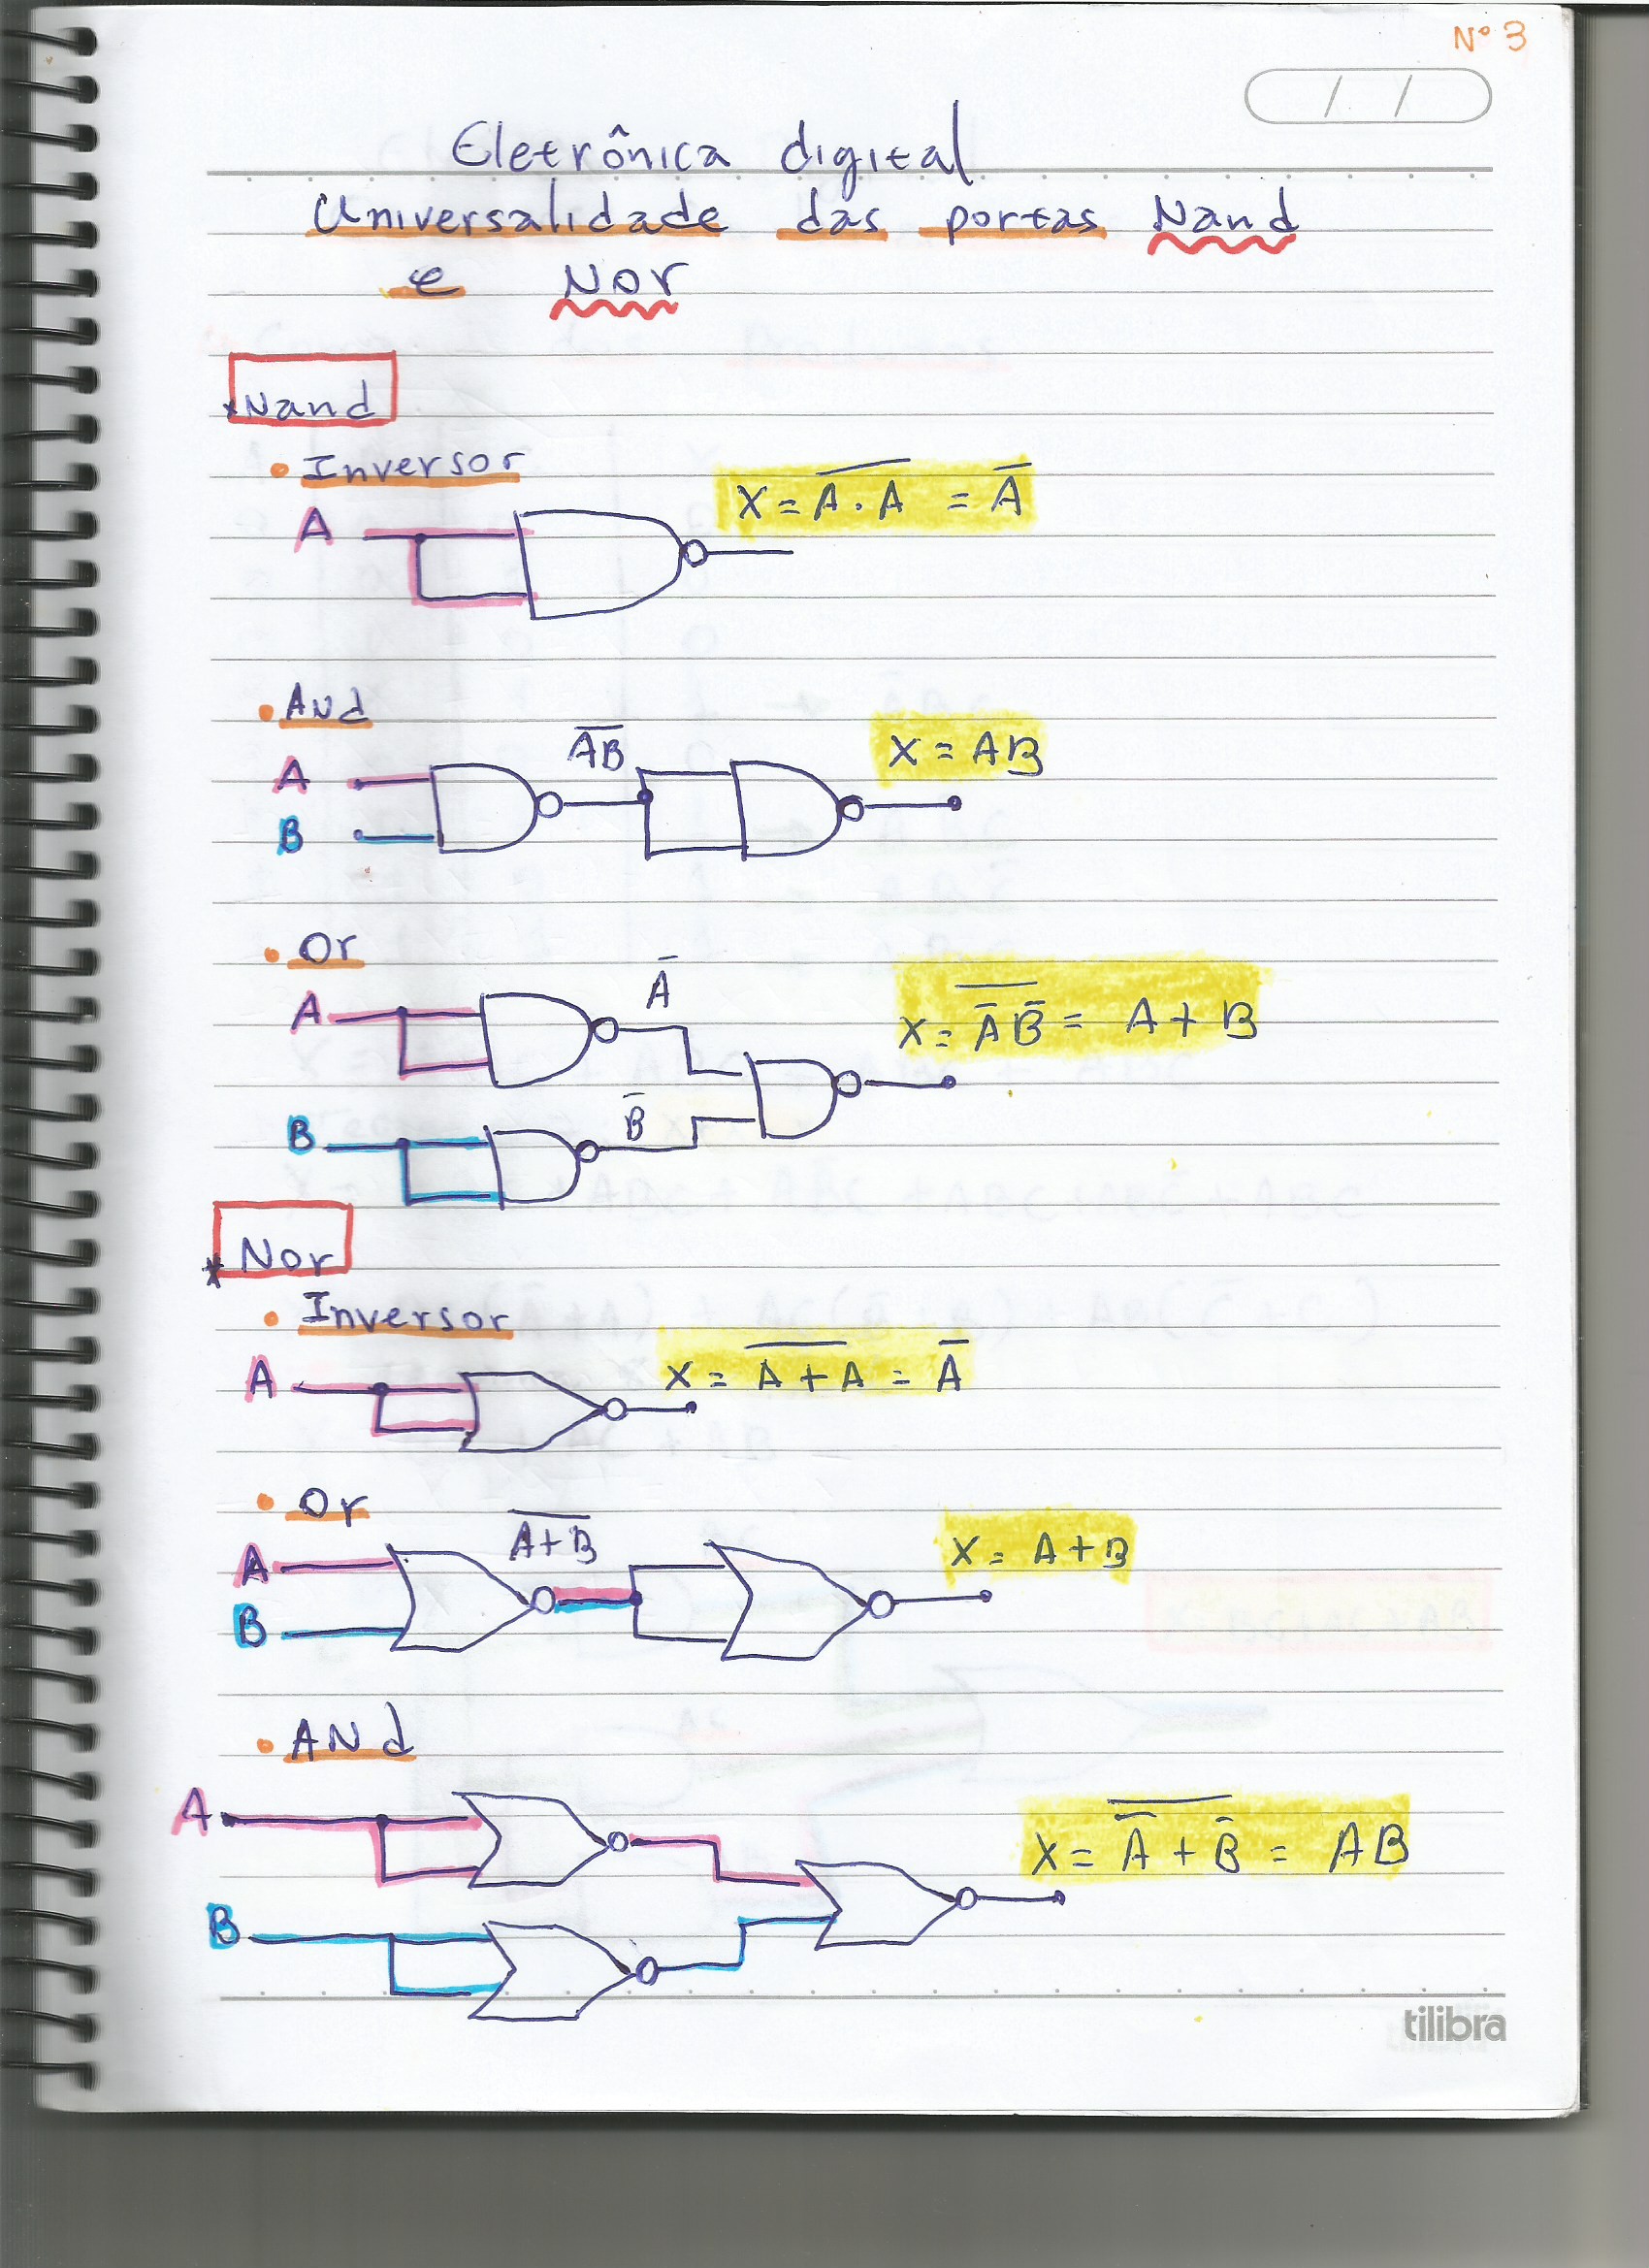 Nº 3
Eletrônica digital
Universalidade das portas Nand
e Nor
*Nand
• Inversor
X = A̅ ̅·̅ ̅A̅ = A̅
A
• And
A̅B̅
X = AB
A
B
• Or
A̅
A
X = A̅̅ B̅̅ = A + B
B̅
B
* Nor
• Inversor
X = A̅ ̅+̅ ̅A̅ = A̅
A
• Or
A̅+̅B̅
X = A+B
A
B
• ANd
A
X = A̅̅ ̅+̅ ̅B̅̅ = AB
B
tilibra